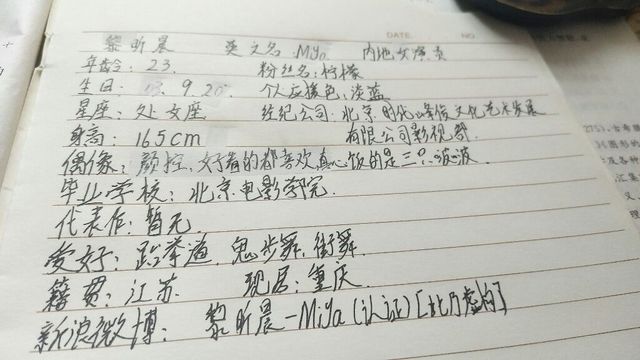 DATE. NO
黎昕晨 英文名:Miya 内地女演员
年龄:23. 粉丝名:柠檬
生日: 9.20 个人应援色:淡蓝
星座:处女座 经纪公司:北京时代峰俊文化艺术发展
身高:165cm 有限公司影视部.
偶像:颜控,好看的都喜欢真心饭的是三只
毕业学校:北京电影学院.
代表作:暂无.
爱好:跆拳道,鬼步舞,街舞.
籍贯:江苏 现居:重庆.
新浪微博:黎昕晨-Miya(认证)[此乃虚构]